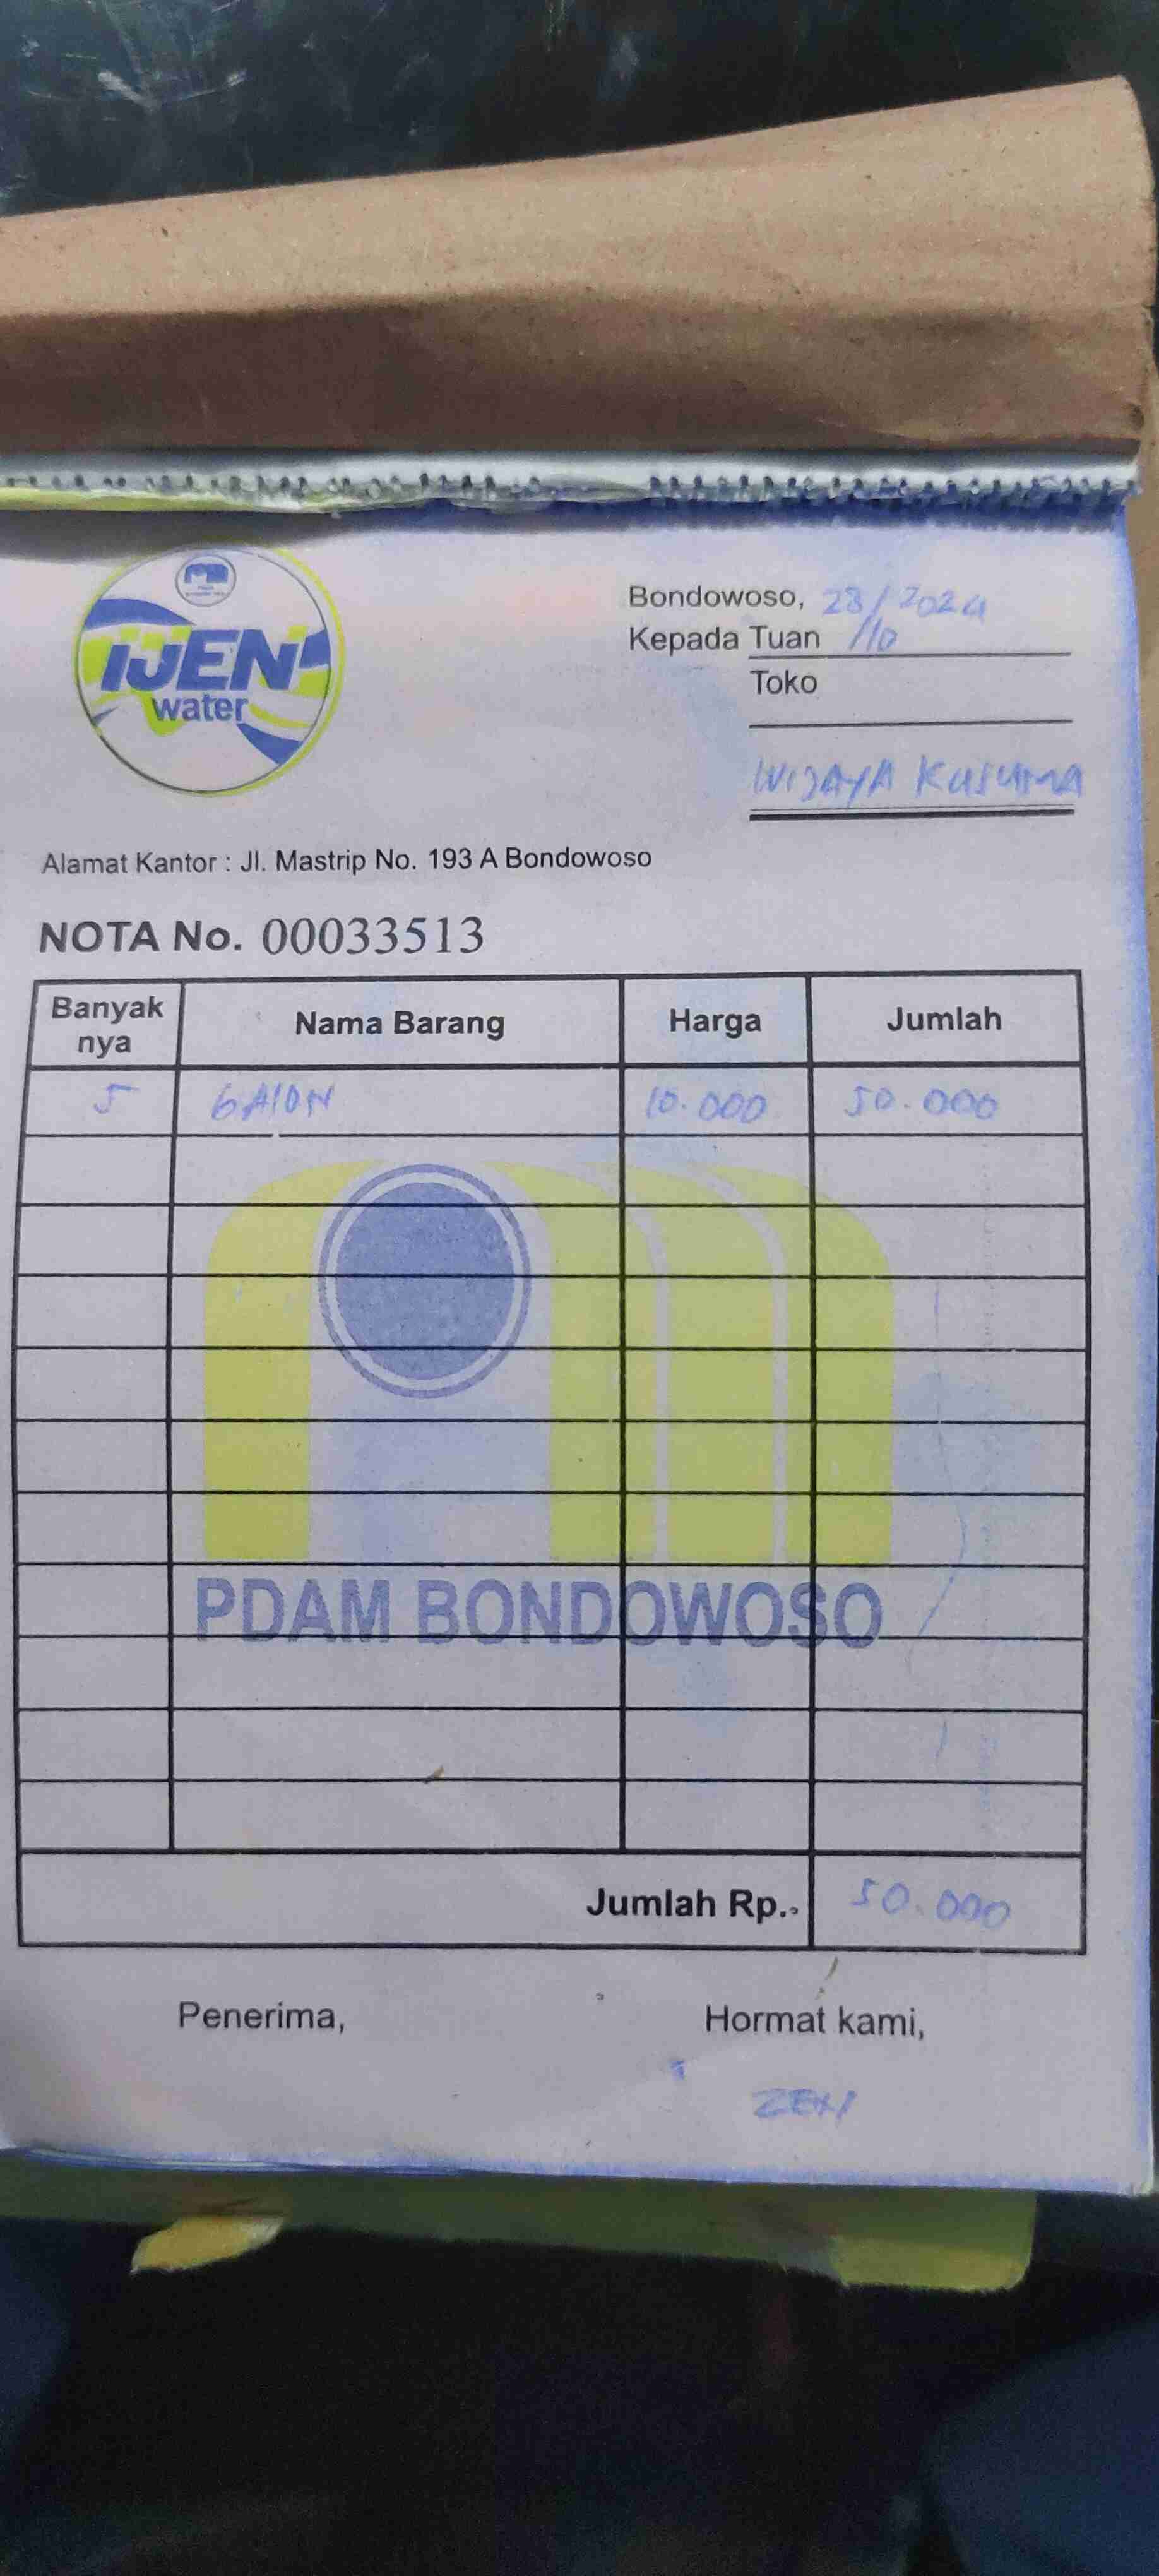 IJEN
water
Bondowoso, 28/10 2024
Kepada Tuan
Toko
WIJAYA KUSUMA
Alamat Kantor : Jl. Mastrip No. 193 A Bondowoso
NOTA No. 00033513
Banyak nya Nama Barang Harga Jumlah
5 GALON 10.000 50.000
PDAM BONDOWOSO
Jumlah Rp.. 50.000
Penerima, Hormat kami,
ZEN